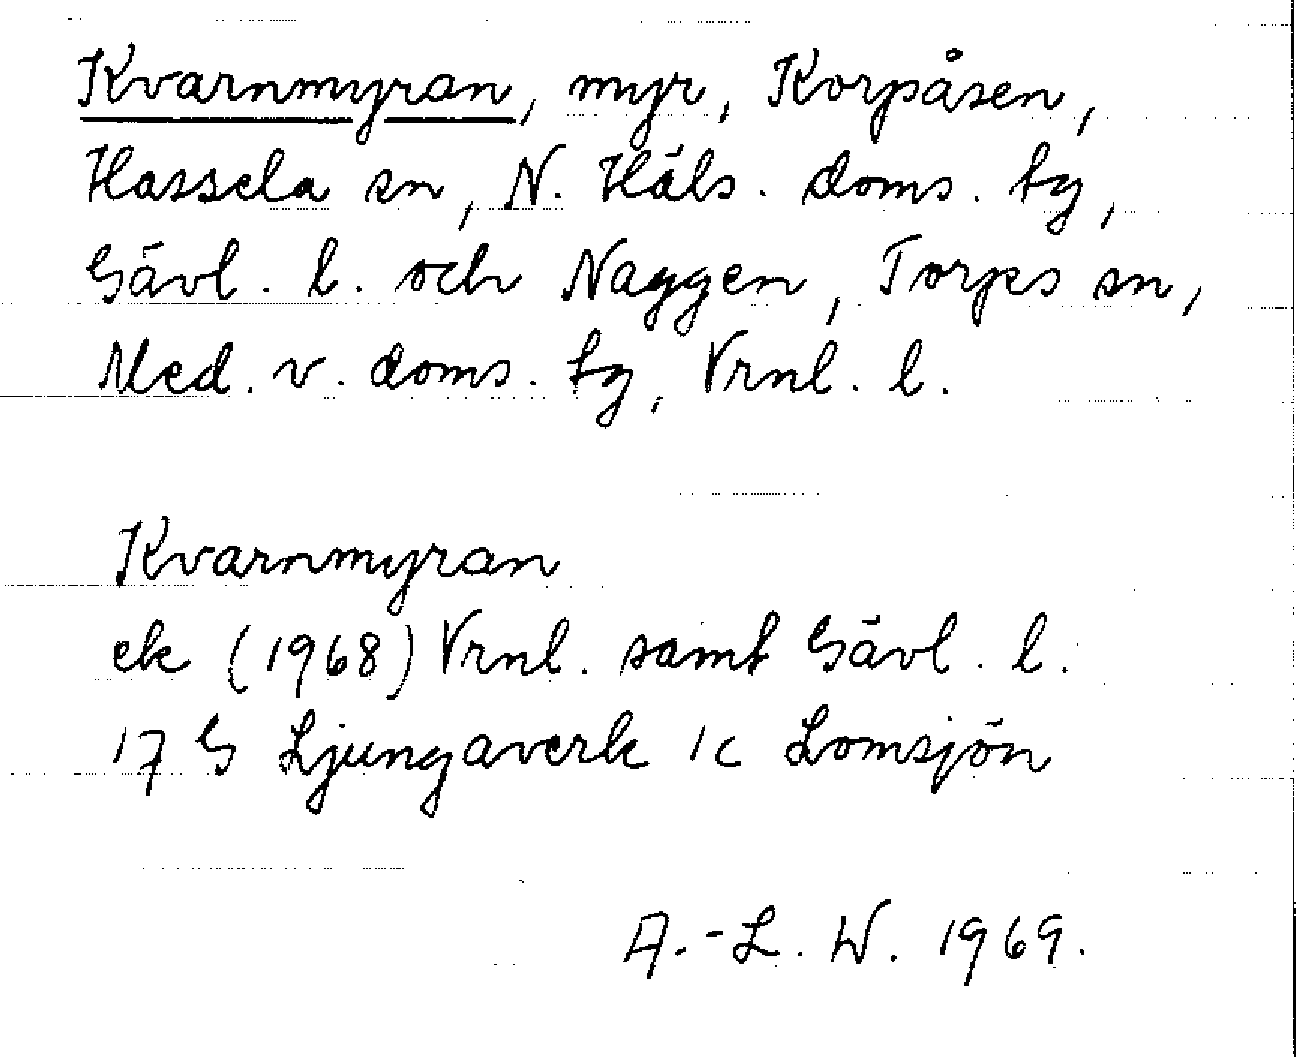 Kvarnmyran, myr, Korpåsen,
Hassela sn, N. Häls. doms. tg,
Gävl. l. och Naggen, Torps sn,
Med. v. doms. tg, Vrnl. l.
Kvarnmyran
ek (1968) Vrnl. samt Gävl. l.
17 G Ljungaverk 1c Lomsjön
A.-L. W. 1969.